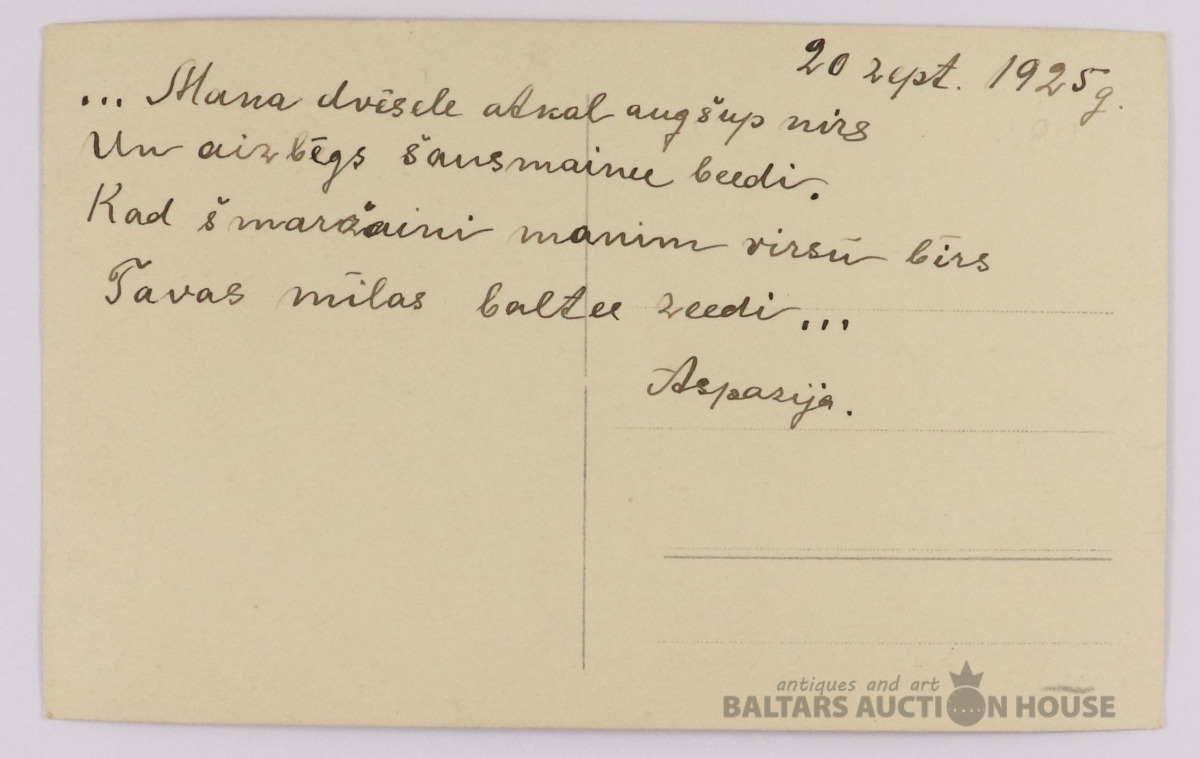 20 sept. 1925 g.
... Mana dvēsele atkal augšup nirs
Un aizbēgs šausmainee beedi.
Kad šmaržaini manim virsū birs
Tavas mīlas baltee zeedi...
Aspazija.
antiques and art
BALTARS AUCTION HOUSE